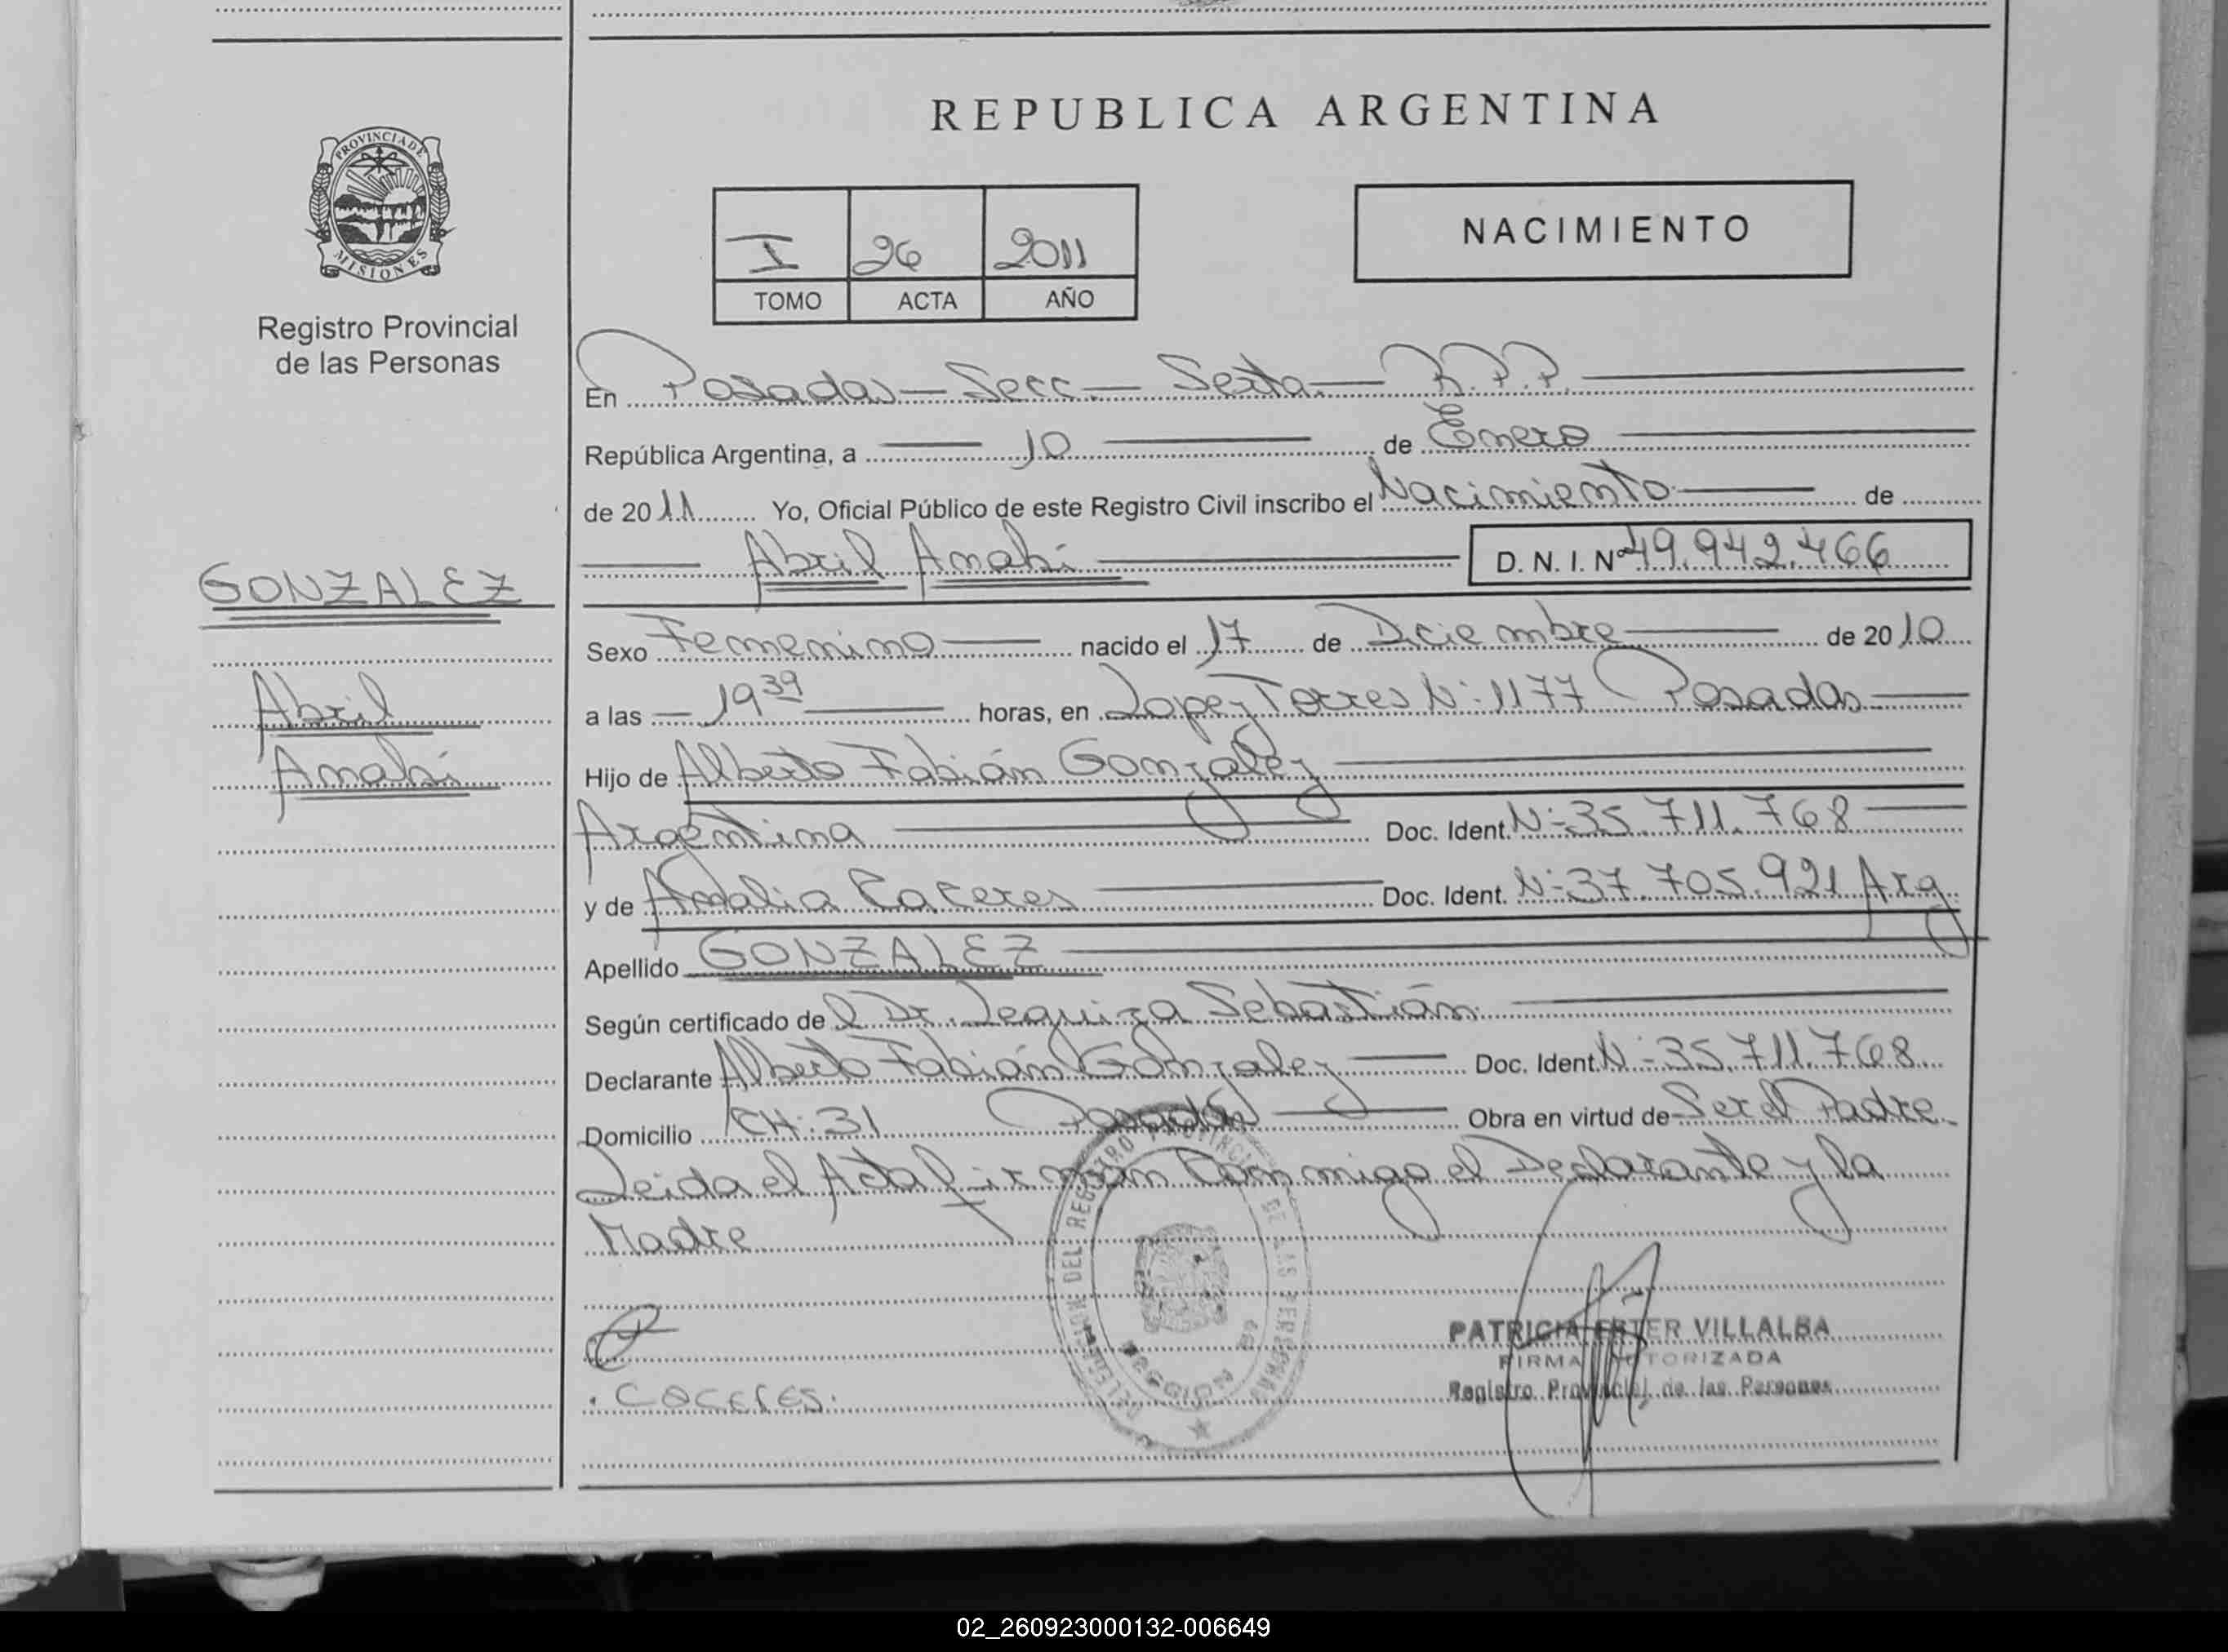 REPUBLICA ARGENTINA
PROVINCIA DE
MISIONES
Registro Provincial
de las Personas
NACIMIENTO
I 26 2011
TOMO ACTA AÑO
En Posadas - Secc. - Sexta - R.P.P.
República Argentina, a 10 de Enero
de 2011 Yo, Oficial Público de este Registro Civil inscribo el Nacimiento de
Abril Anahí D. N. I. Nº 49.942.466
GONZALEZ
Abril
Anahí
Sexo Femenino nacido el 17 de Diciembre de 2010
a las 19 39 horas, en Lopez Torres N: 1177 Posadas
Hijo de Alberto Fabián Gonzalez
Argentina Doc. Ident. N: 35.711.768
y de Amalia Caceres Doc. Ident. N: 37.705.921 Arg
Apellido GONZALEZ
Según certificado de l Dr. Leguiza Sebastián
Declarante Alberto Fabián Gonzalez Doc. Ident. N: 35.711.768
Domicilio CH: 31 Posadas Obra en virtud de Ser el Padre
Leida el Acta firman Conmigo el Declarante y la
Madre
DELEGACION DEL REGISTRO PROVINCIAL DE LAS PERSONAS
PATRICIA ESTER VILLALBA
FIRMA AUTORIZADA
Registro Provincial de las Personas
. CACERES.
02_260923000132-006649